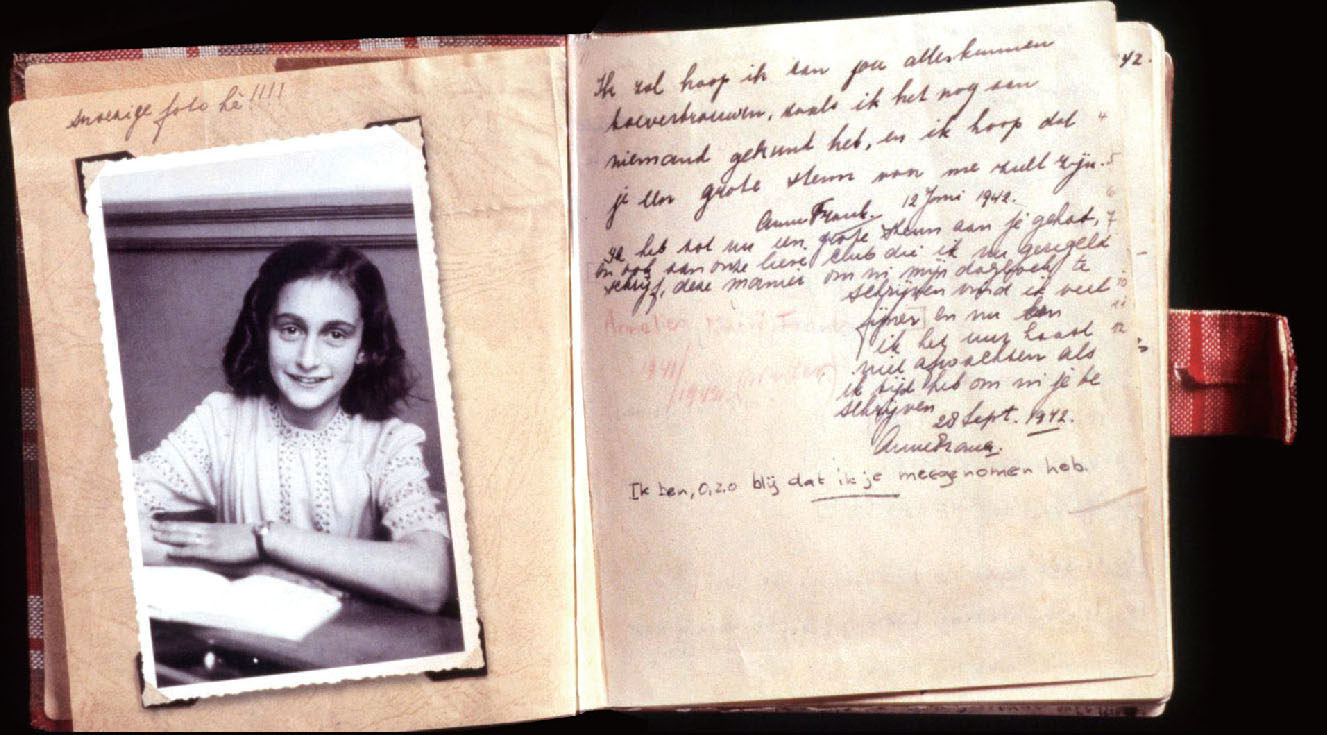 snoezige foto hè!!!!
Ik zal hoop ik aan jou alles kunnen
toevertrouwen, zoals ik het nog aan
niemand gekunt heb, en ik hoop dat
je een grote steun voor me zult zijn.
Anne Frank. 12 Juni 1942.
Ik heb tot nu een grote steun aan je gehad,
en ook aan onze lieve club die ik nu geregeld
schrijf, deze manier om in mijn dagboek te
schrijven vind ik veel
fijner en nu kan
ik het uur haast
niet afwachten als
ik tijd heb om in je te
schrijven
28 Sept. 1942.
Anne Frank.
Ik ben, o, zo blij dat ik je meegenomen heb.
42.
5
6
7
10
11
12
Annelies Marie Frank
1941/
/1942.